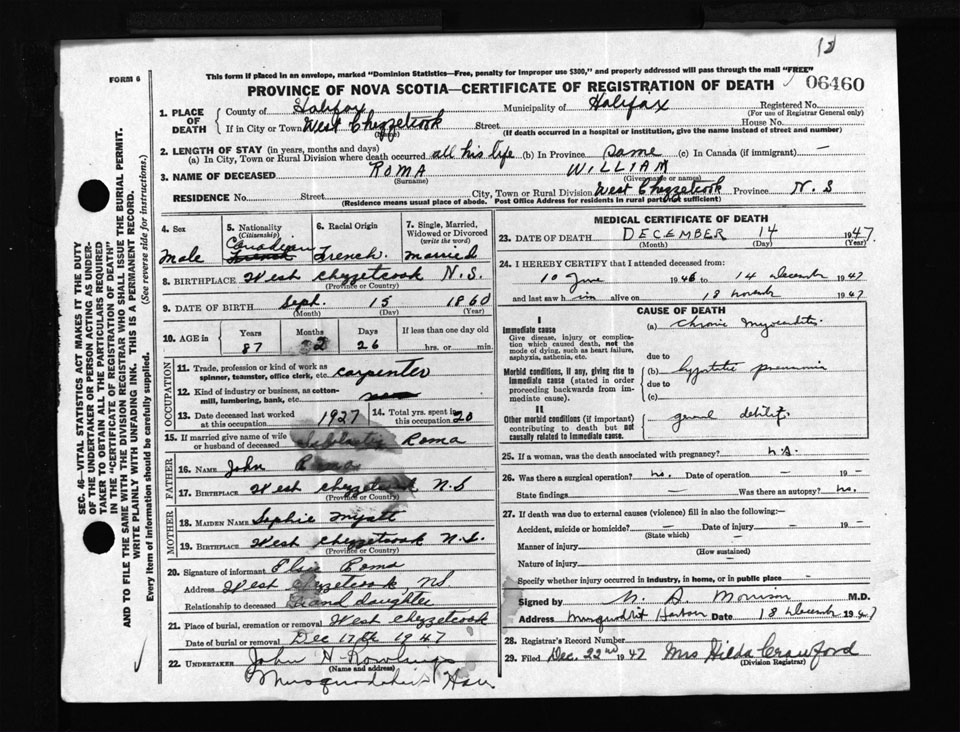 12
FORM 6
This form if placed in an envelope, marked "Dominion Statistics—Free, penalty for improper use $300," and properly addressed will pass through the mail "FREE"
06460
PROVINCE OF NOVA SCOTIA—CERTIFICATE OF REGISTRATION OF DEATH
1. PLACE OF DEATH
County of Halifax Municipality of Halifax Registered No.
(For use of Registrar General only)
If in City or Town West Chezzetcook Street House No.
(Name) (If death occurred in a hospital or institution, give the name instead of street and number)
2. LENGTH OF STAY (in years, months and days)
(a) In City, Town or Rural Division where death occurred all his life (b) In Province same (c) In Canada (if immigrant) —
3. NAME OF DECEASED ROMA WILLIAM
(Surname) (Given name or names)
RESIDENCE No. Street City, Town or Rural Division West Chezzetcook Province N. S
(Residence means usual place of abode. Post Office Address for residents in rural parts sufficient)
4. Sex
Male
5. Nationality
(Citizenship)
Canadian
French
6. Racial Origin
French.
7. Single, Married, Widowed or Divorced
(write the word)
Married
8. BIRTHPLACE West Chezzetcook N.S.
(Province or Country)
9. DATE OF BIRTH Sept. 15 1860
(Month) (Day) (Year)
10. AGE if
Years Months Days If less than one day old
87 2 26 hrs. or min.
OCCUPATION
11. Trade, profession or kind of work as spinner, teamster, office clerk, etc. carpenter
12. Kind of industry or business, as cotton-mill, lumbering, bank, etc.
13. Date deceased last worked at this occupation 1927
14. Total yrs. spent in this occupation 20
15. If married give name of wife or husband of deceased Roma
FATHER
16. NAME John Roma
17. BIRTHPLACE West Chezzetcook N.S
(Province or Country)
MOTHER
18. MAIDEN NAME Sophie Myatt
19. BIRTHPLACE West Chezzetcook N.S.
(Province or Country)
20. Signature of informant Elsie Roma
Address West Chezzetcook, NS
Relationship to deceased Grand daughter
21. Place of burial, cremation or removal West Chezzetcook
Date of burial or removal Dec 17th 1947
22. UNDERTAKER John N Rowlings
(Name and address)
MEDICAL CERTIFICATE OF DEATH
23. DATE OF DEATH DECEMBER 14 1947
(Month) (Day) (Year)
24. I HEREBY CERTIFY that I attended deceased from:
10 June 1946 to 14 December 1947
and last saw him alive on 18 November 1947
CAUSE OF DEATH
I
Immediate cause
Give disease, injury or complication which caused death, not the mode of dying, such as heart failure, asphyxia, asthenia, etc.
(a) chronic myocarditis
due to
Morbid conditions, if any, giving rise to immediate cause (stated in order proceeding backwards from immediate cause).
(b) hypostatic pneumonia
due to
(c)
II
Other morbid conditions (if important) contributing to death but not causally related to immediate cause.
general debility
25. If a woman, was the death associated with pregnancy?
26. Was there a surgical operation? no. Date of operation — 19 —
State findings — Was there an autopsy? no.
27. If death was due to external causes (violence) fill in also the following:—
Accident, suicide or homicide? — Date of injury — 19 —
(State which)
Manner of injury
(How sustained)
Nature of injury
Specify whether injury occurred in industry, in home, or in public place —
Signed by Morrison M.D.
Address Musquodoboit Harbour Date 18 December 1947
28. Registrar's Record Number
29. Filed Dec. 22nd 1947 Mrs Hilda Crawford
(Division Registrar)
SEC. 46—VITAL STATISTICS ACT MAKES IT THE DUTY
OF THE UNDERTAKER OR PERSON ACTING AS UNDER-
TAKER TO OBTAIN ALL THE PARTICULARS REQUIRED
IN THE "CERTIFICATE OF REGISTRATION OF DEATH"
AND TO FILE THE SAME WITH THE DIVISION REGISTRAR WHO SHALL ISSUE THE BURIAL PERMIT.
WRITE PLAINLY WITH UNFADING INK. THIS IS A PERMANENT RECORD.
Every item of information should be carefully supplied. (See reverse side for instructions.)